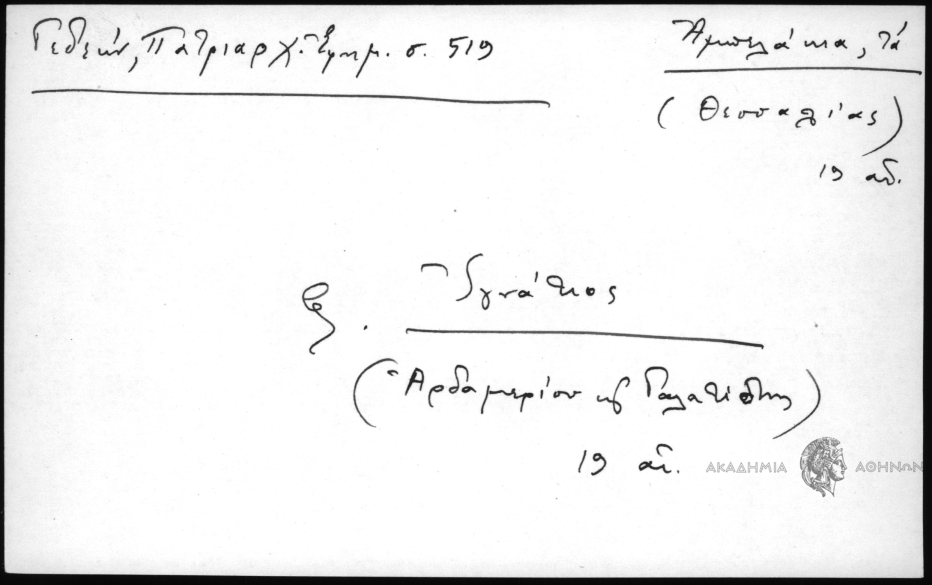 Γεδεών, Πατριαρχ. Ἐφημ. σ. 519
Ἀμπελάκια, τά
(Θεσσαλίας)
19 αἰ.
Ἰγνάτιος
(Ἀρδαμερίου καὶ Γαλατίστης)
19 αἰ.
ΑΚΑΔΗΜΙΑ ΑΘΗΝΩΝ